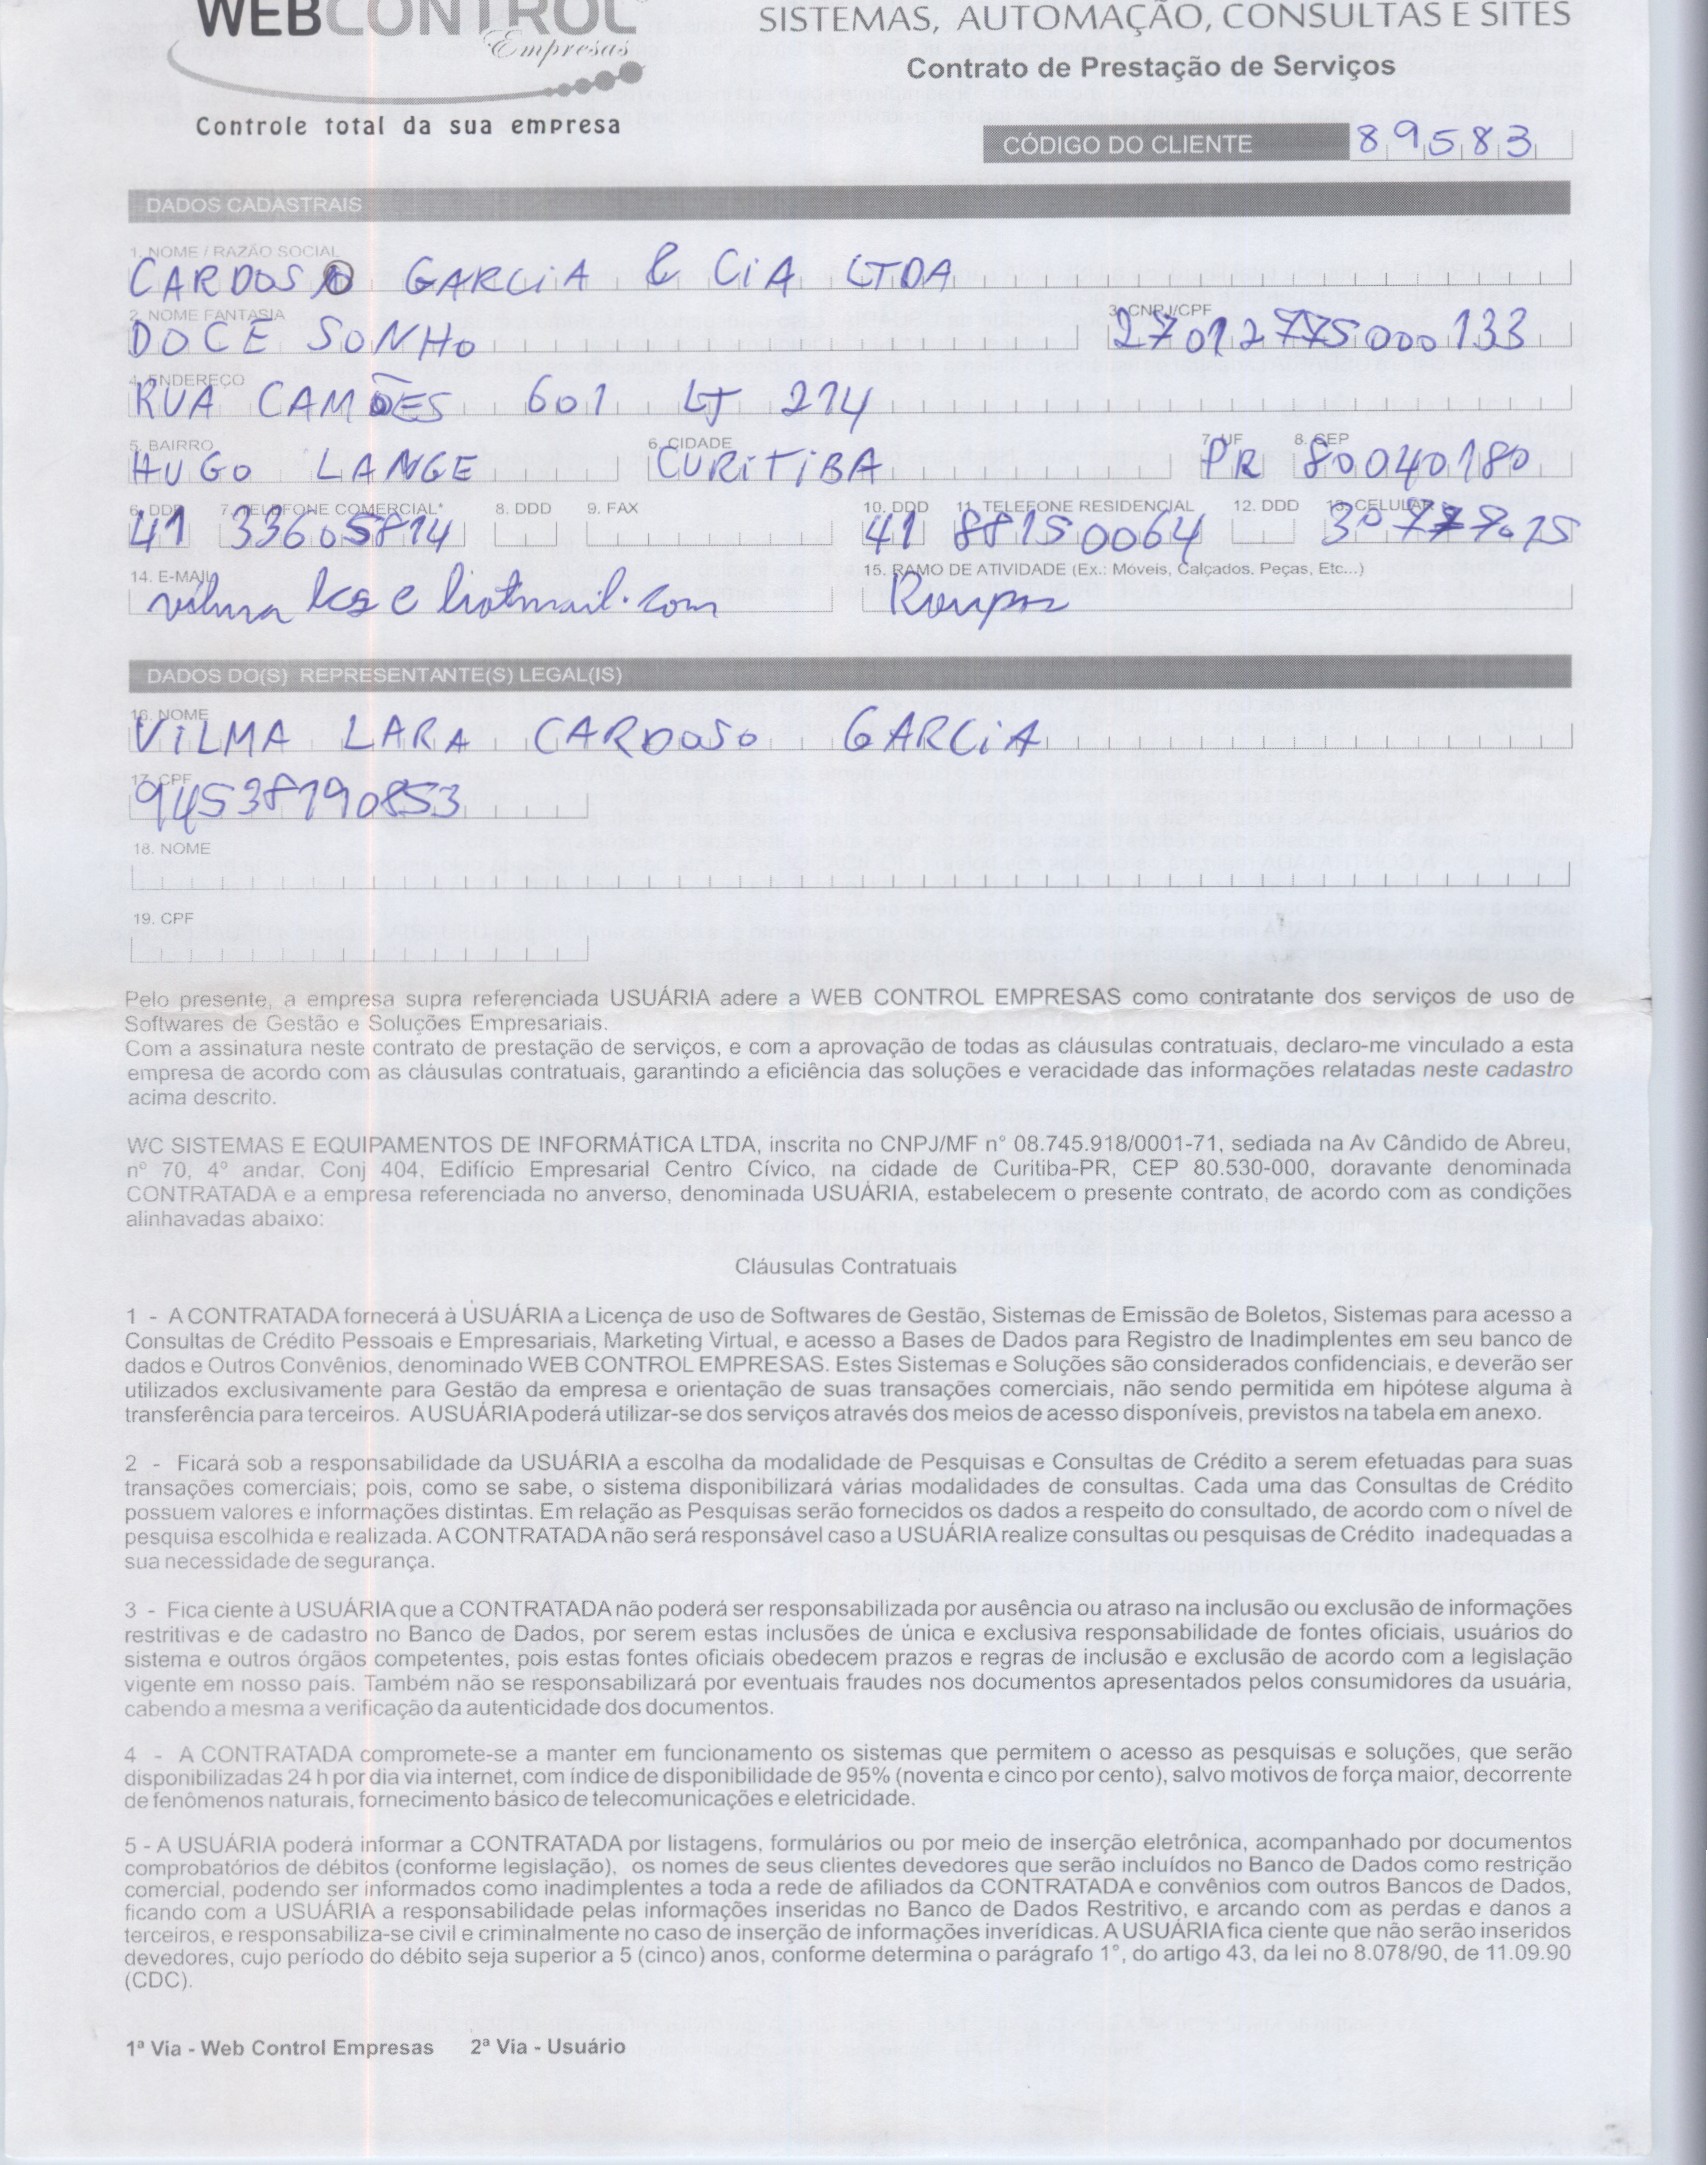 WEBCONTROL
Empresas
Controle total da sua empresa
SISTEMAS, AUTOMAÇÃO, CONSULTAS E SITES
Contrato de Prestação de Serviços
CÓDIGO DO CLIENTE 89583
DADOS CADASTRAIS
1. NOME / RAZÃO SOCIAL
CARDOSO GARCIA & CIA LTDA
2. NOME FANTASIA 3. CNPJ/CPF
DOCE SONHO 27012775000133
4. ENDEREÇO
RUA CAMÕES 601 LJ 214
5. BAIRRO 6. CIDADE 7. UF 8. CEP
HUGO LANGE CURITIBA PR 80040180
6. DDD 7. TELEFONE COMERCIAL* 8. DDD 9. FAX 10. DDD 11. TELEFONE RESIDENCIAL 12. DDD 13. CELULAR
41 33605814 41 88150064
14. E-MAIL 15. RAMO DE ATIVIDADE (Ex.: Móveis, Calçados. Peças, Etc...)
Roupas
DADOS DO(S) REPRESENTANTE(S) LEGAL(IS)
16. NOME
VILMA LARA CARDOSO GARCIA
17. CPF
94538190853
18. NOME
19. CPF
Pelo presente, a empresa supra referenciada USUÁRIA adere a WEB CONTROL EMPRESAS como contratante dos serviços de uso de
Softwares de Gestão e Soluções Empresariais.
Com a assinatura neste contrato de prestação de serviços, e com a aprovação de todas as cláusulas contratuais, declaro-me vinculado a esta
empresa de acordo com as cláusulas contratuais, garantindo a eficiência das soluções e veracidade das informações relatadas neste cadastro
acima descrito.
WC SISTEMAS E EQUIPAMENTOS DE INFORMÁTICA LTDA, inscrita no CNPJ/MF nº 08.745.918/0001-71, sediada na Av Cândido de Abreu,
nº 70, 4º andar, Conj 404, Edifício Empresarial Centro Cívico, na cidade de Curitiba-PR, CEP 80.530-000, doravante denominada
CONTRATADA e a empresa referenciada no anverso, denominada USUÁRIA, estabelecem o presente contrato, de acordo com as condições
alinhavadas abaixo:
Cláusulas Contratuais
1 - A CONTRATADA fornecerá à USUÁRIA a Licença de uso de Softwares de Gestão, Sistemas de Emissão de Boletos, Sistemas para acesso a
Consultas de Crédito Pessoais e Empresariais, Marketing Virtual, e acesso a Bases de Dados para Registro de Inadimplentes em seu banco de
dados e Outros Convênios, denominado WEB CONTROL EMPRESAS. Estes Sistemas e Soluções são considerados confidenciais, e deverão ser
utilizados exclusivamente para Gestão da empresa e orientação de suas transações comerciais, não sendo permitida em hipótese alguma à
transferência para terceiros. A USUÁRIA poderá utilizar-se dos serviços através dos meios de acesso disponíveis, previstos na tabela em anexo.
2 - Ficará sob a responsabilidade da USUÁRIA a escolha da modalidade de Pesquisas e Consultas de Crédito a serem efetuadas para suas
transações comerciais; pois, como se sabe, o sistema disponibilizará várias modalidades de consultas. Cada uma das Consultas de Crédito
possuem valores e informações distintas. Em relação as Pesquisas serão fornecidos os dados a respeito do consultado, de acordo com o nível de
pesquisa escolhida e realizada. A CONTRATADA não será responsável caso a USUÁRIA realize consultas ou pesquisas de Crédito inadequadas a
sua necessidade de segurança.
3 - Fica ciente à USUÁRIA que a CONTRATADA não poderá ser responsabilizada por ausência ou atraso na inclusão ou exclusão de informações
restritivas e de cadastro no Banco de Dados, por serem estas inclusões de única e exclusiva responsabilidade de fontes oficiais, usuários do
sistema e outros órgãos competentes, pois estas fontes oficiais obedecem prazos e regras de inclusão e exclusão de acordo com a legislação
vigente em nosso país. Também não se responsabilizará por eventuais fraudes nos documentos apresentados pelos consumidores da usuária,
cabendo a mesma a verificação da autenticidade dos documentos.
4 - A CONTRATADA compromete-se a manter em funcionamento os sistemas que permitem o acesso as pesquisas e soluções, que serão
disponibilizadas 24 h por dia via internet, com índice de disponibilidade de 95% (noventa e cinco por cento), salvo motivos de força maior, decorrente
de fenômenos naturais, fornecimento básico de telecomunicações e eletricidade.
5 - A USUÁRIA poderá informar a CONTRATADA por listagens, formulários ou por meio de inserção eletrônica, acompanhado por documentos
comprobatórios de débitos (conforme legislação), os nomes de seus clientes devedores que serão incluídos no Banco de Dados como restrição
comercial, podendo ser informados como inadimplentes a toda a rede de afiliados da CONTRATADA e convênios com outros Bancos de Dados,
ficando com a USUÁRIA a responsabilidade pelas informações inseridas no Banco de Dados Restritivo, e arcando com as perdas e danos a
terceiros, e responsabiliza-se civil e criminalmente no caso de inserção de informações inverídicas. A USUÁRIA fica ciente que não serão inseridos
devedores, cujo período do débito seja superior a 5 (cinco) anos, conforme determina o parágrafo 1°, do artigo 43, da lei no 8.078/90, de 11.09.90
(CDC).
1ª Via - Web Control Empresas 2ª Via - Usuário